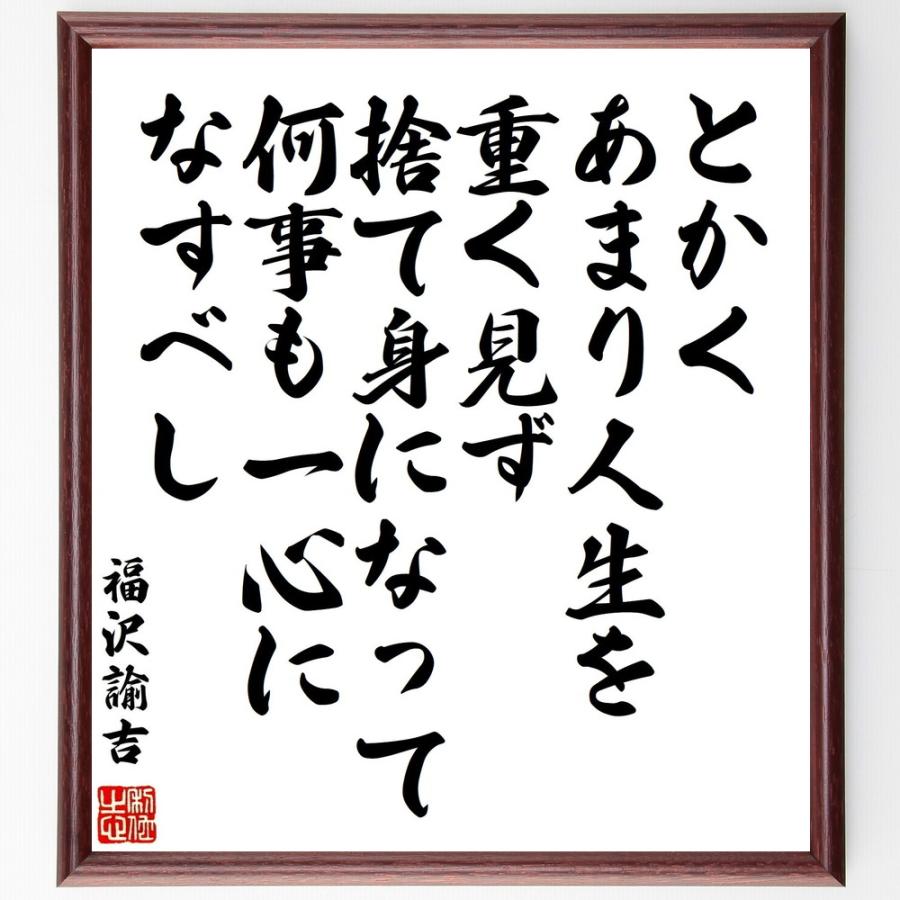 とかく
あまり人生を
重く見ず
捨て身になって
何事も一心に
なすべし
福沢諭吉